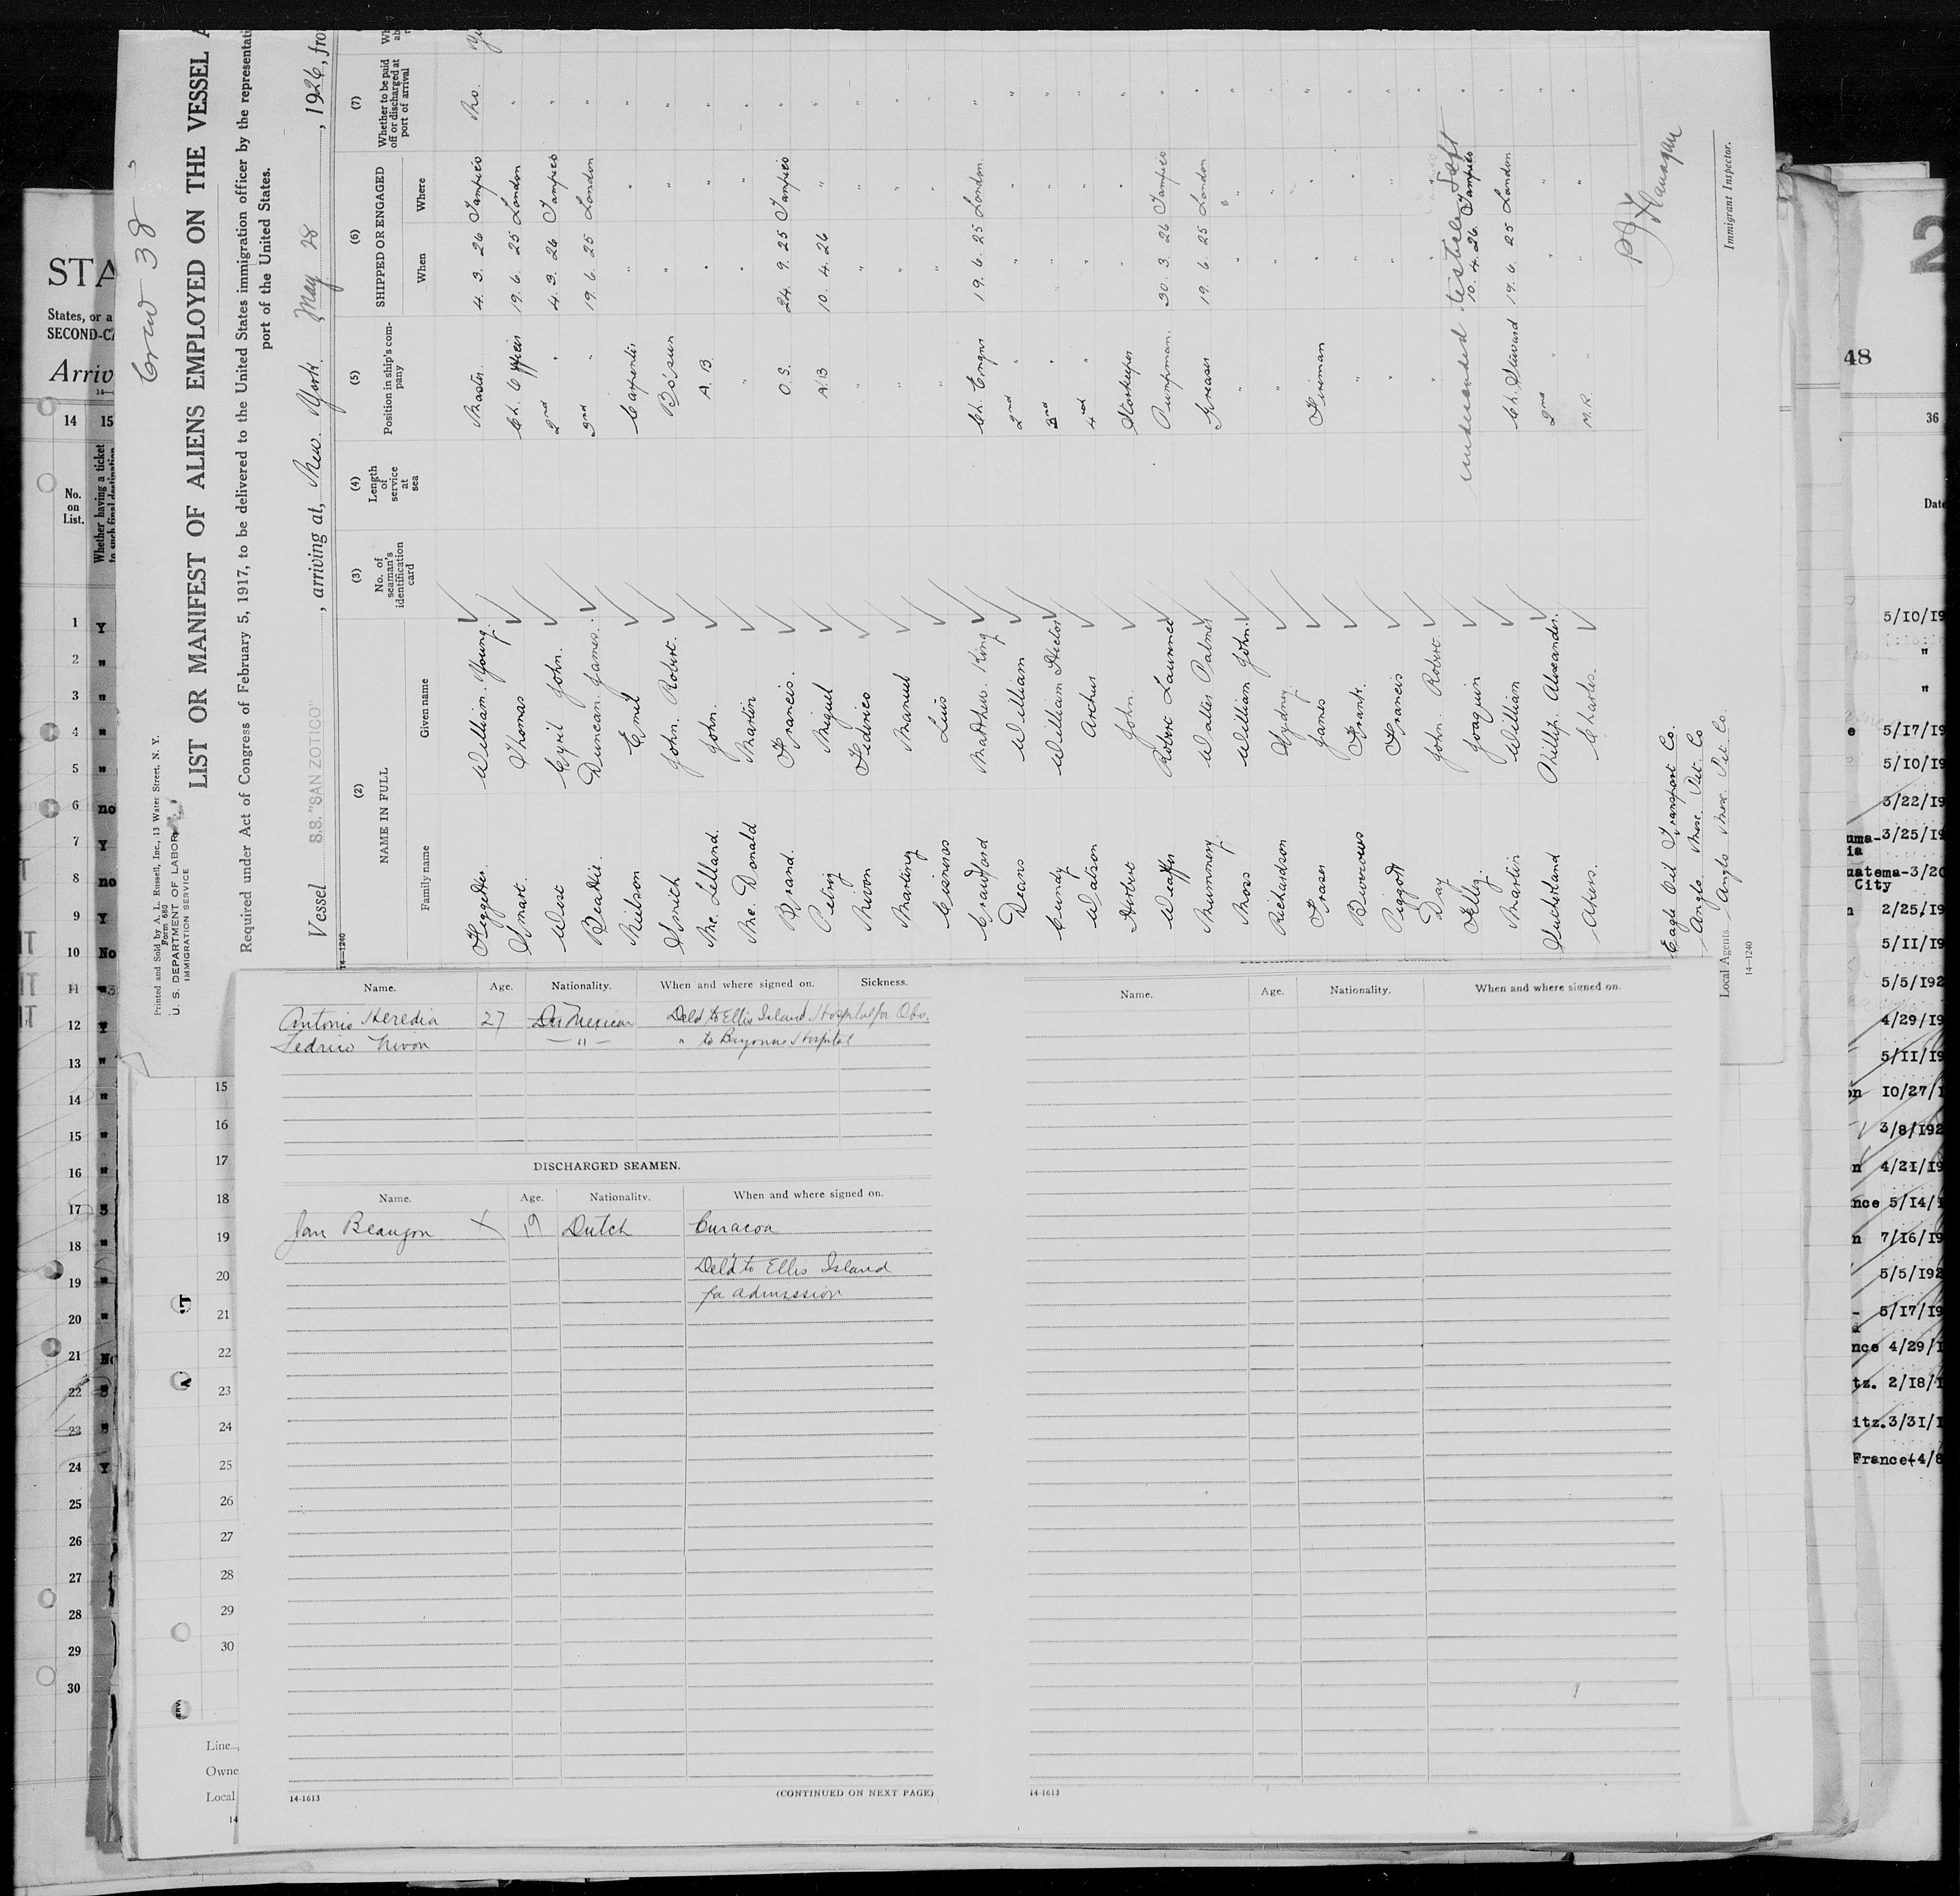 Crew 38
Printed and Sold by A. L. Russell, Inc., 13 Water Street, N. Y.
Form 680
U. S. DEPARTMENT OF LABOR
IMMIGRATION SERVICE
LIST OR MANIFEST OF ALIENS EMPLOYED ON THE VESSEL A
Required under Act of Congress of February 5, 1917, to be delivered to the United States immigration officer by the representati
port of the United States.
Vessel S.S. "SAN ZOTICO", arriving at, New York, May 28, 1926, fro
14-1240
(2) (3) (4) (5) (6) (7)
NAME IN FULL No. of seaman's identification card Length of service at sea Position in ship's company SHIPPED OR ENGAGED Whether to be paid off or discharged at port of arrival
Family name Given name When Where
William Young. Master. 4. 3. 26 Tampico No.
Smart. Thomas Ch. Officer 19. 6. 25 London "
West Cyril John. 2nd " 4. 3. 26 Tampico "
Beattie. Duncan James. 3rd " 19. 6. 25 London "
Nielson Emil Carpenter " " "
Smith John Robert. Bo'sun " " "
Mc. Lelland. John. A. B. " " "
Mc. Donald Martin " " " "
Brand. Francis. O. S. 24. 9. 25 Tampico "
Miguel A.B 10. 4. 26 " "
Nivon Fedirico " " " "
Manuel " " " "
Cisneros Luis " " " "
Crawford Matthew King Ch. Engnr 19. 6. 25 London "
Deans William 2nd " " " "
Cundy William Hector 3rd " " " "
Watson Archie 4th " " " "
John. Storekeeper " " "
Robert Laurence Pumpman. 30. 3. 26 Tampico "
Mummery Walter Palmer Greaser 19. 6. 25 London "
Moss William John. " " " "
Richardson Sydney. " " " "
Fraser James Fireman " " "
Burrows Frank. " " " "
Piggott Francis " " " "
Day John. Robert " " " "
Joaquin 10. 4. 26. Tampico "
Martin William Ch. Steward 19. 6. 25 London "
Sutherland Phillip Alexander. 2nd " " " "
Akers. Charles. M. R. " " "
Eagle Oil Transport Co.
Anglo Mex. Pet. Co
Local Agents Anglo Mex. Pet Co.
14-1240
Immigrant Inspector.
Name. Age. Nationality. When and where signed on. Sickness.
Antonio Heredia 27 Mexican Deld to Ellis Island Hospital for Obs.
Fedrico Nivon — " — " to Bayonne Hospital
DISCHARGED SEAMEN.
Name. Age. Nationality. When and where signed on.
Jan Beaujon X 19 Dutch Curacoa
Deld to Ellis Island
for admission
14-1613
(CONTINUED ON NEXT PAGE)
Name. Age. Nationality. When and where signed on.
14-1613
STA
States, or a
SECOND-CA
Arriv
14 15
No. on List.
Whether having a ticket
1 Y
2 "
3 "
4 "
5 "
6 no
7 Y
8 no
9 Y
10 No
11
12 Y
13 "
14 "
15 "
16 "
17
18 "
19 "
20 "
21 No
22
23 "
24 Y
25
26
27
28
29
30
15
16
17
18
19
20
21
22
23
24
25
26
27
28
29
30
Line
Owne
Local
14
2
48
36
Date
5/10/19
"
"
5/17/19
5/10/19
3/22/19
3/25/19
City
2/25/19
5/11/19
5/5/192
4/29/19
5/11/19
10/27/1
3/8/192
4/21/19
nce 5/14/
7/16/19
5/5/192
5/17/19
nce 4/29/1
tz. 2/18/1
itz. 3/31/1
France 4/8